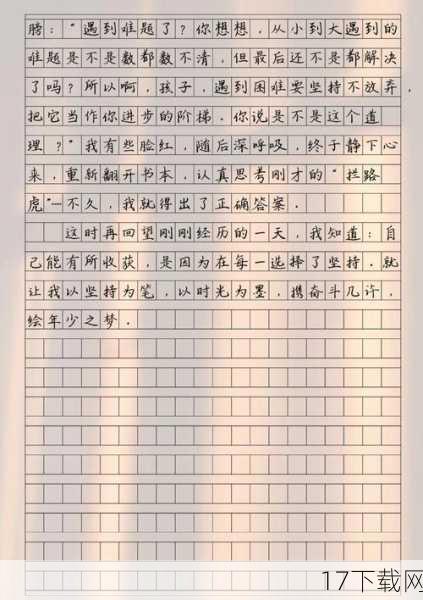 膀："遇到难题了？你想想，从小到大遇到的
难题是不是数都数不清，但最后还不是都解决
了吗？所以啊，孩子，遇到困难要坚持不放弃，
把它当作你进步的阶梯．你说是不是这个道
理？"我有些脸红，随后深呼吸，终于静下心
来，重新翻开书本，认真思考刚才的"拦路
虎"…不久，我就得出了正确答案．
这时再回望刚刚经历的一天，我知道：自
己能有所收获，是因为在每一选择了坚持．就
让我以坚持为笔，以时光为墨，携奋斗几许，
绘年少之梦．
17下载网